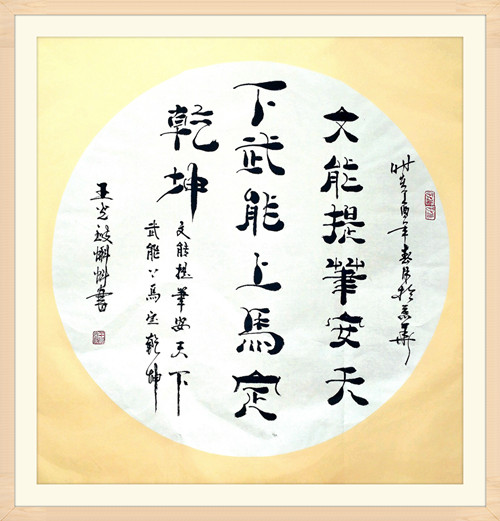 时在丁酉年春月於京華
文能提筆安天
下武能上馬定
乾坤
文能提筆安天下
武能上馬定乾坤
王書